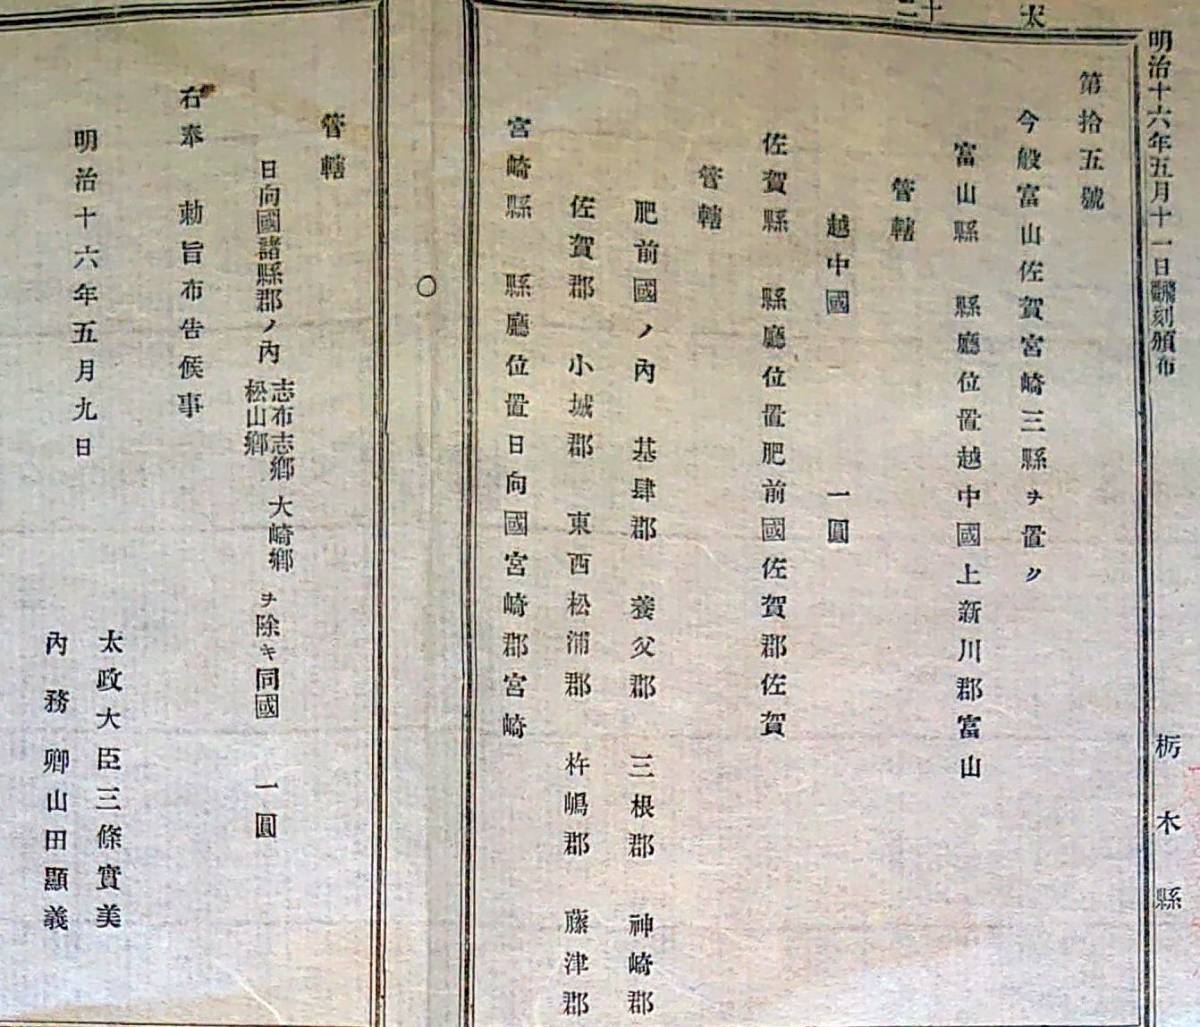 明治十六年五月十一日飜刻頒布 栃木縣
太 十二
第拾五號
今般富山佐賀宮崎三縣ヲ置ク
富山縣 縣廳位置越中國上新川郡富山
管轄
越中國 一圓
佐賀縣 縣廳位置肥前國佐賀郡佐賀
管轄
肥前國ノ內 基肆郡 養父郡 三根郡 神崎郡
佐賀郡 小城郡 東西松浦郡 杵嶋郡 藤津郡
宮崎縣 縣廳位置日向國宮崎郡宮崎
〇
管轄
日向國諸縣郡ノ內 志布志鄕 大崎鄕 松山鄕 ヲ除キ同國 一圓
右奉 勅旨布告候事
明治十六年五月九日
太政大臣三條實美
內務卿山田顯義